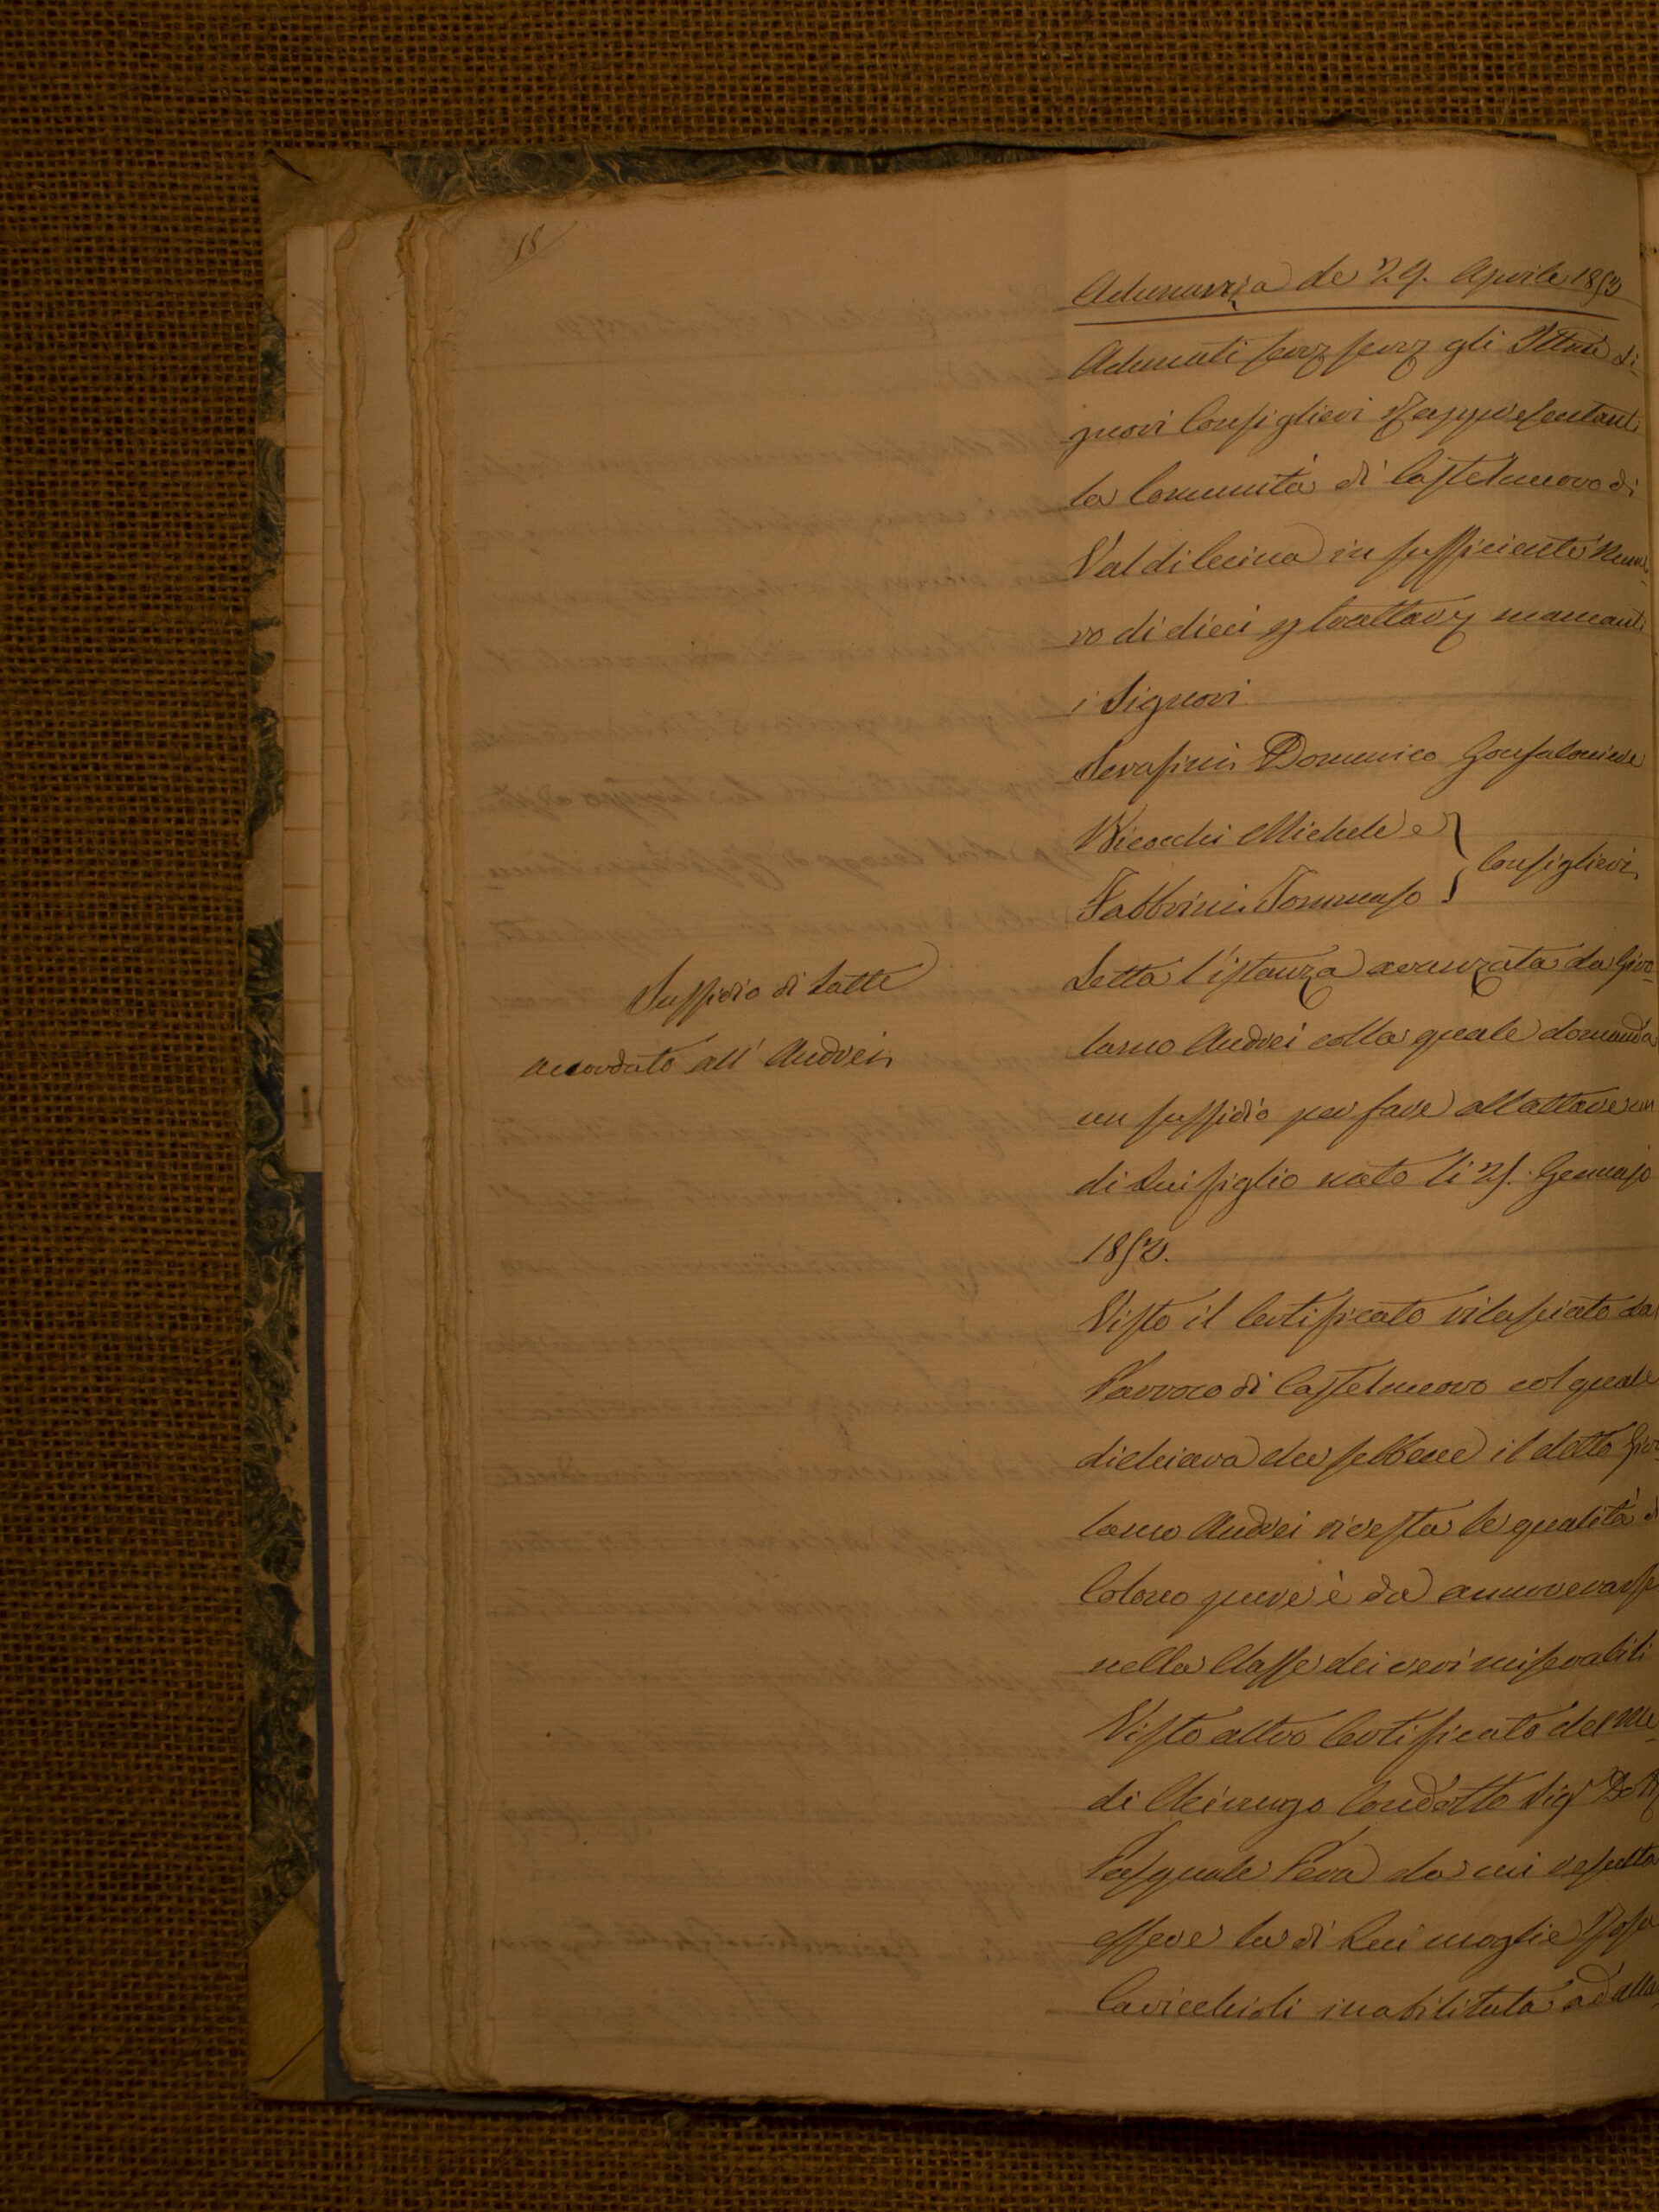 18
Adunanza de 29. Aprile 1853
Adunati gli Illmi Si-
gnori Consiglieri Rappresentanti
la Comunità di Castelnuovo di
Val di Cecina in sufficiente Nume-
ro di dieci mancanti
i Signori
Serafini Domenico Gonfaloniere
Bicocchi Michele e
Fabbrini Tommaso } Consiglieri
Sussidio di Latte
accordato all' Andrei
Letta l'istanza avanzata da Giro-
lamo Andrei colla quale domanda
un sussidio per fare allattare un
di Lui figlio nato li 25. Gennajo
1853.
Visto il Certificato rilasciato dal
Parroco di Castelnuovo col quale
dichiara che sebbene il detto Giro-
lamo Andrei rivesta la qualità di
Colono pure è da annoverarsi
nella Classe dei veri miserabili
Visto altro Certificato del Me-
di Chirurgo Condotto Sigr Dott
Pasquale Pera da cui resulta
essere la di Lui moglie Rosa
Cavicchioli inabilitata ad alla-